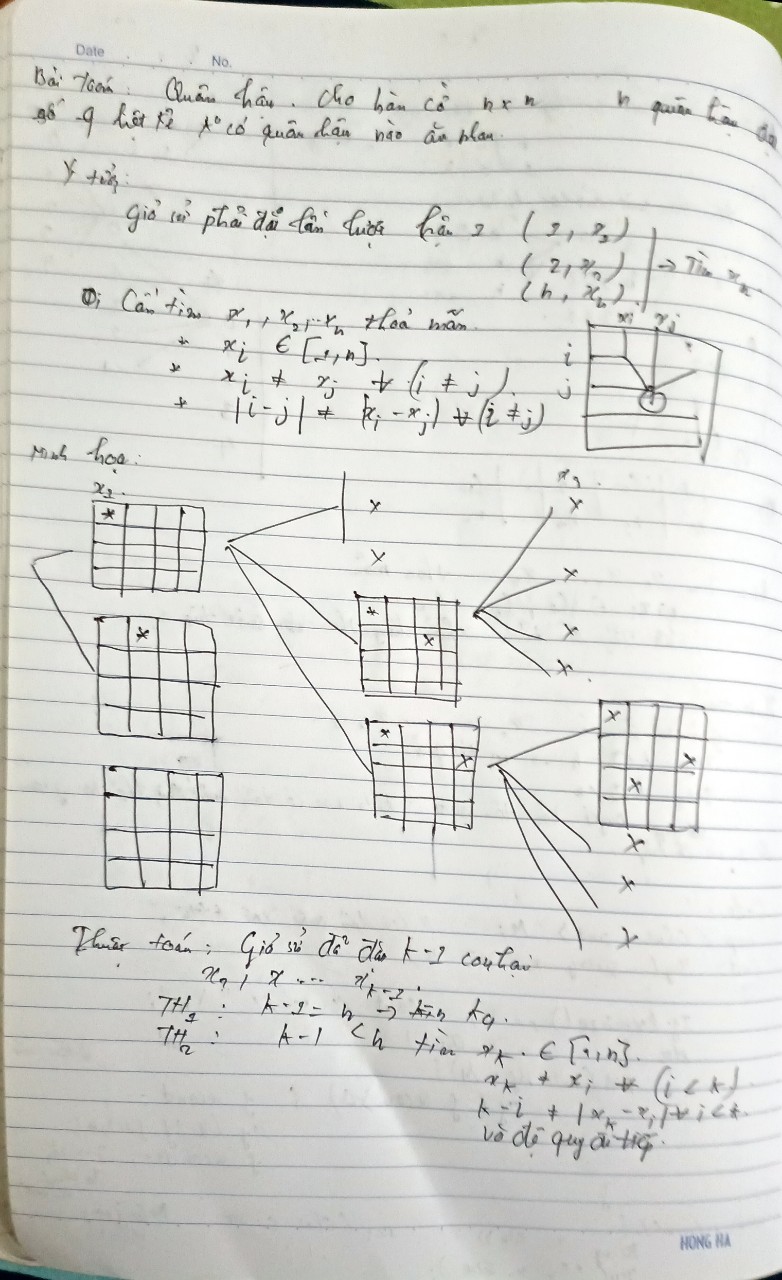 Date . . . No.
Bài toán: Quân hậu. Cho bàn cờ n x n n quân hậu
kê có quân hậu nào ăn nhau.
Ý tưởng:
Giả sử phải đặt lần lượt hậu 1 (1, x1)
(2, x2) → Tìm
(n, xn)
Cần tìm x1, x2, ... xn thoả mãn.
xi xj
* xi ∈ [1, n]. i
* xi ≠ xj ∀ (i ≠ j) j
* |i-j| ≠ |xi - xj| ∀ (i ≠ j)
Minh hoạ:
x1.
* x x
x x
* x x
* x x
* x x
x
x
x
x
x
Thuật toán: Giả sử đã đặt k-1 con hậu
x1, x ... xk-1.
TH1: k-1 = n → kq.
TH2: k-1 < n tìm xk ∈ [1, n].
xk ≠ xi ∀ (i < k)
k-i ≠ |xk - xi| ∀ i < k.
và đệ quy đi tiếp.
HONG HA